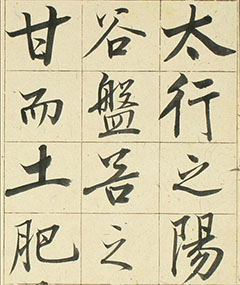 太行之陽
谷盤谷之
甘而土肥